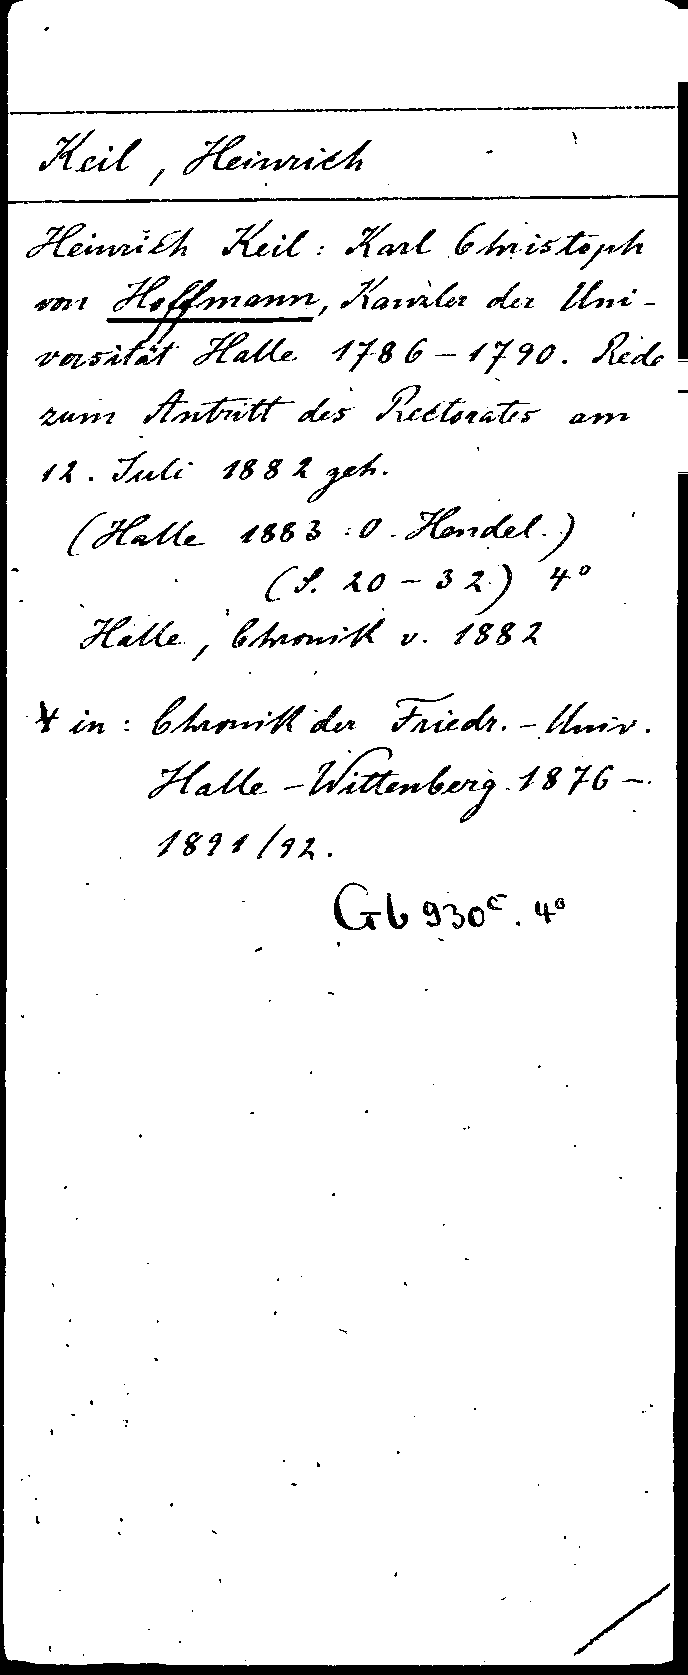 Keil, Heinrich
Heinrich Keil: Karl Christoph
von Hoffmann, Kanzler der Uni-
versität Halle 1786-1790. Rede
zum Antritt des Rectorates am
12. Juli 1882 geh.
(Halle 1883: O. Hendel.)
(S. 20-32) 4°
Halle, Chronik v. 1882
in: Chronik der Friedr.-Univ.
Halle-Wittenberg 1876-
1891/92.
Gb 930ᶜ. 4°